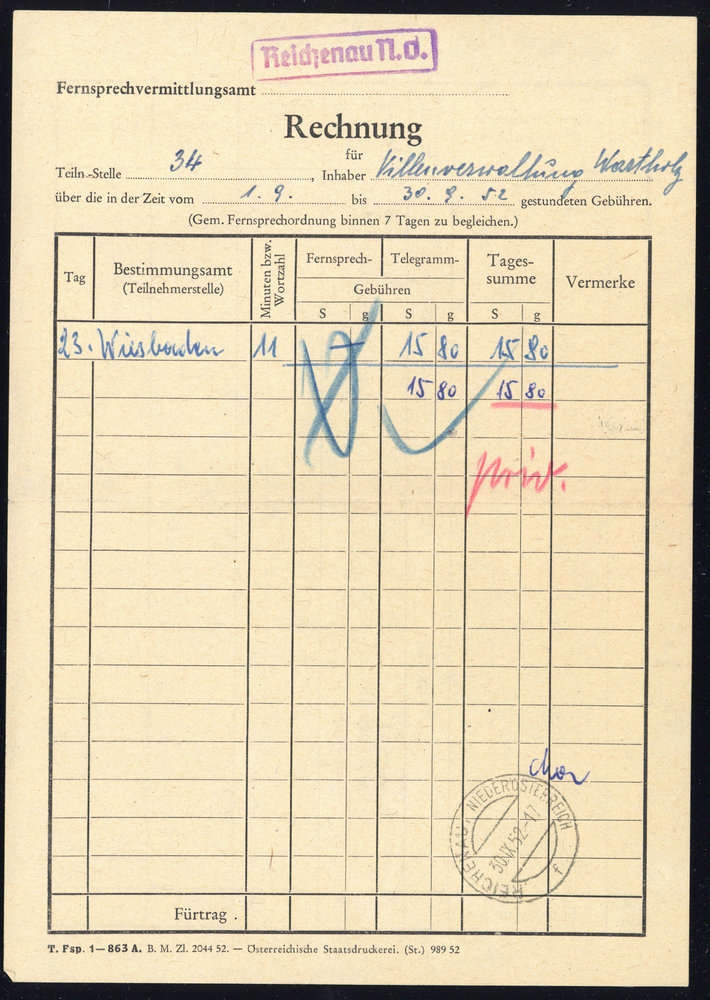 Reichenau N.Ö.
Fernsprechvermittlungsamt
Rechnung
für
Teiln.-Stelle 34, Inhaber Villenverwaltung Wartholz
über die in der Zeit vom 1. 9. bis 30. 9. 52 gestundeten Gebühren.
(Gem. Fernsprechordnung binnen 7 Tagen zu begleichen.)
Tag
Bestimmungsamt
(Teilnehmerstelle)
Minuten bzw.
Wortzahl
Fernsprech-
Telegramm-
Gebühren
Tages-
summe
Vermerke
S g S g S g
23. Wiesbaden 11 15 80 15 80
15 80 15 80
priv.
REICHENAU, NIEDERÖSTERREICH
30.IX.52-17
f
Fürtrag .
T. Fsp. 1—863 A. B. M. Zl. 2044 52. — Österreichische Staatsdruckerei. (St.) 989 52